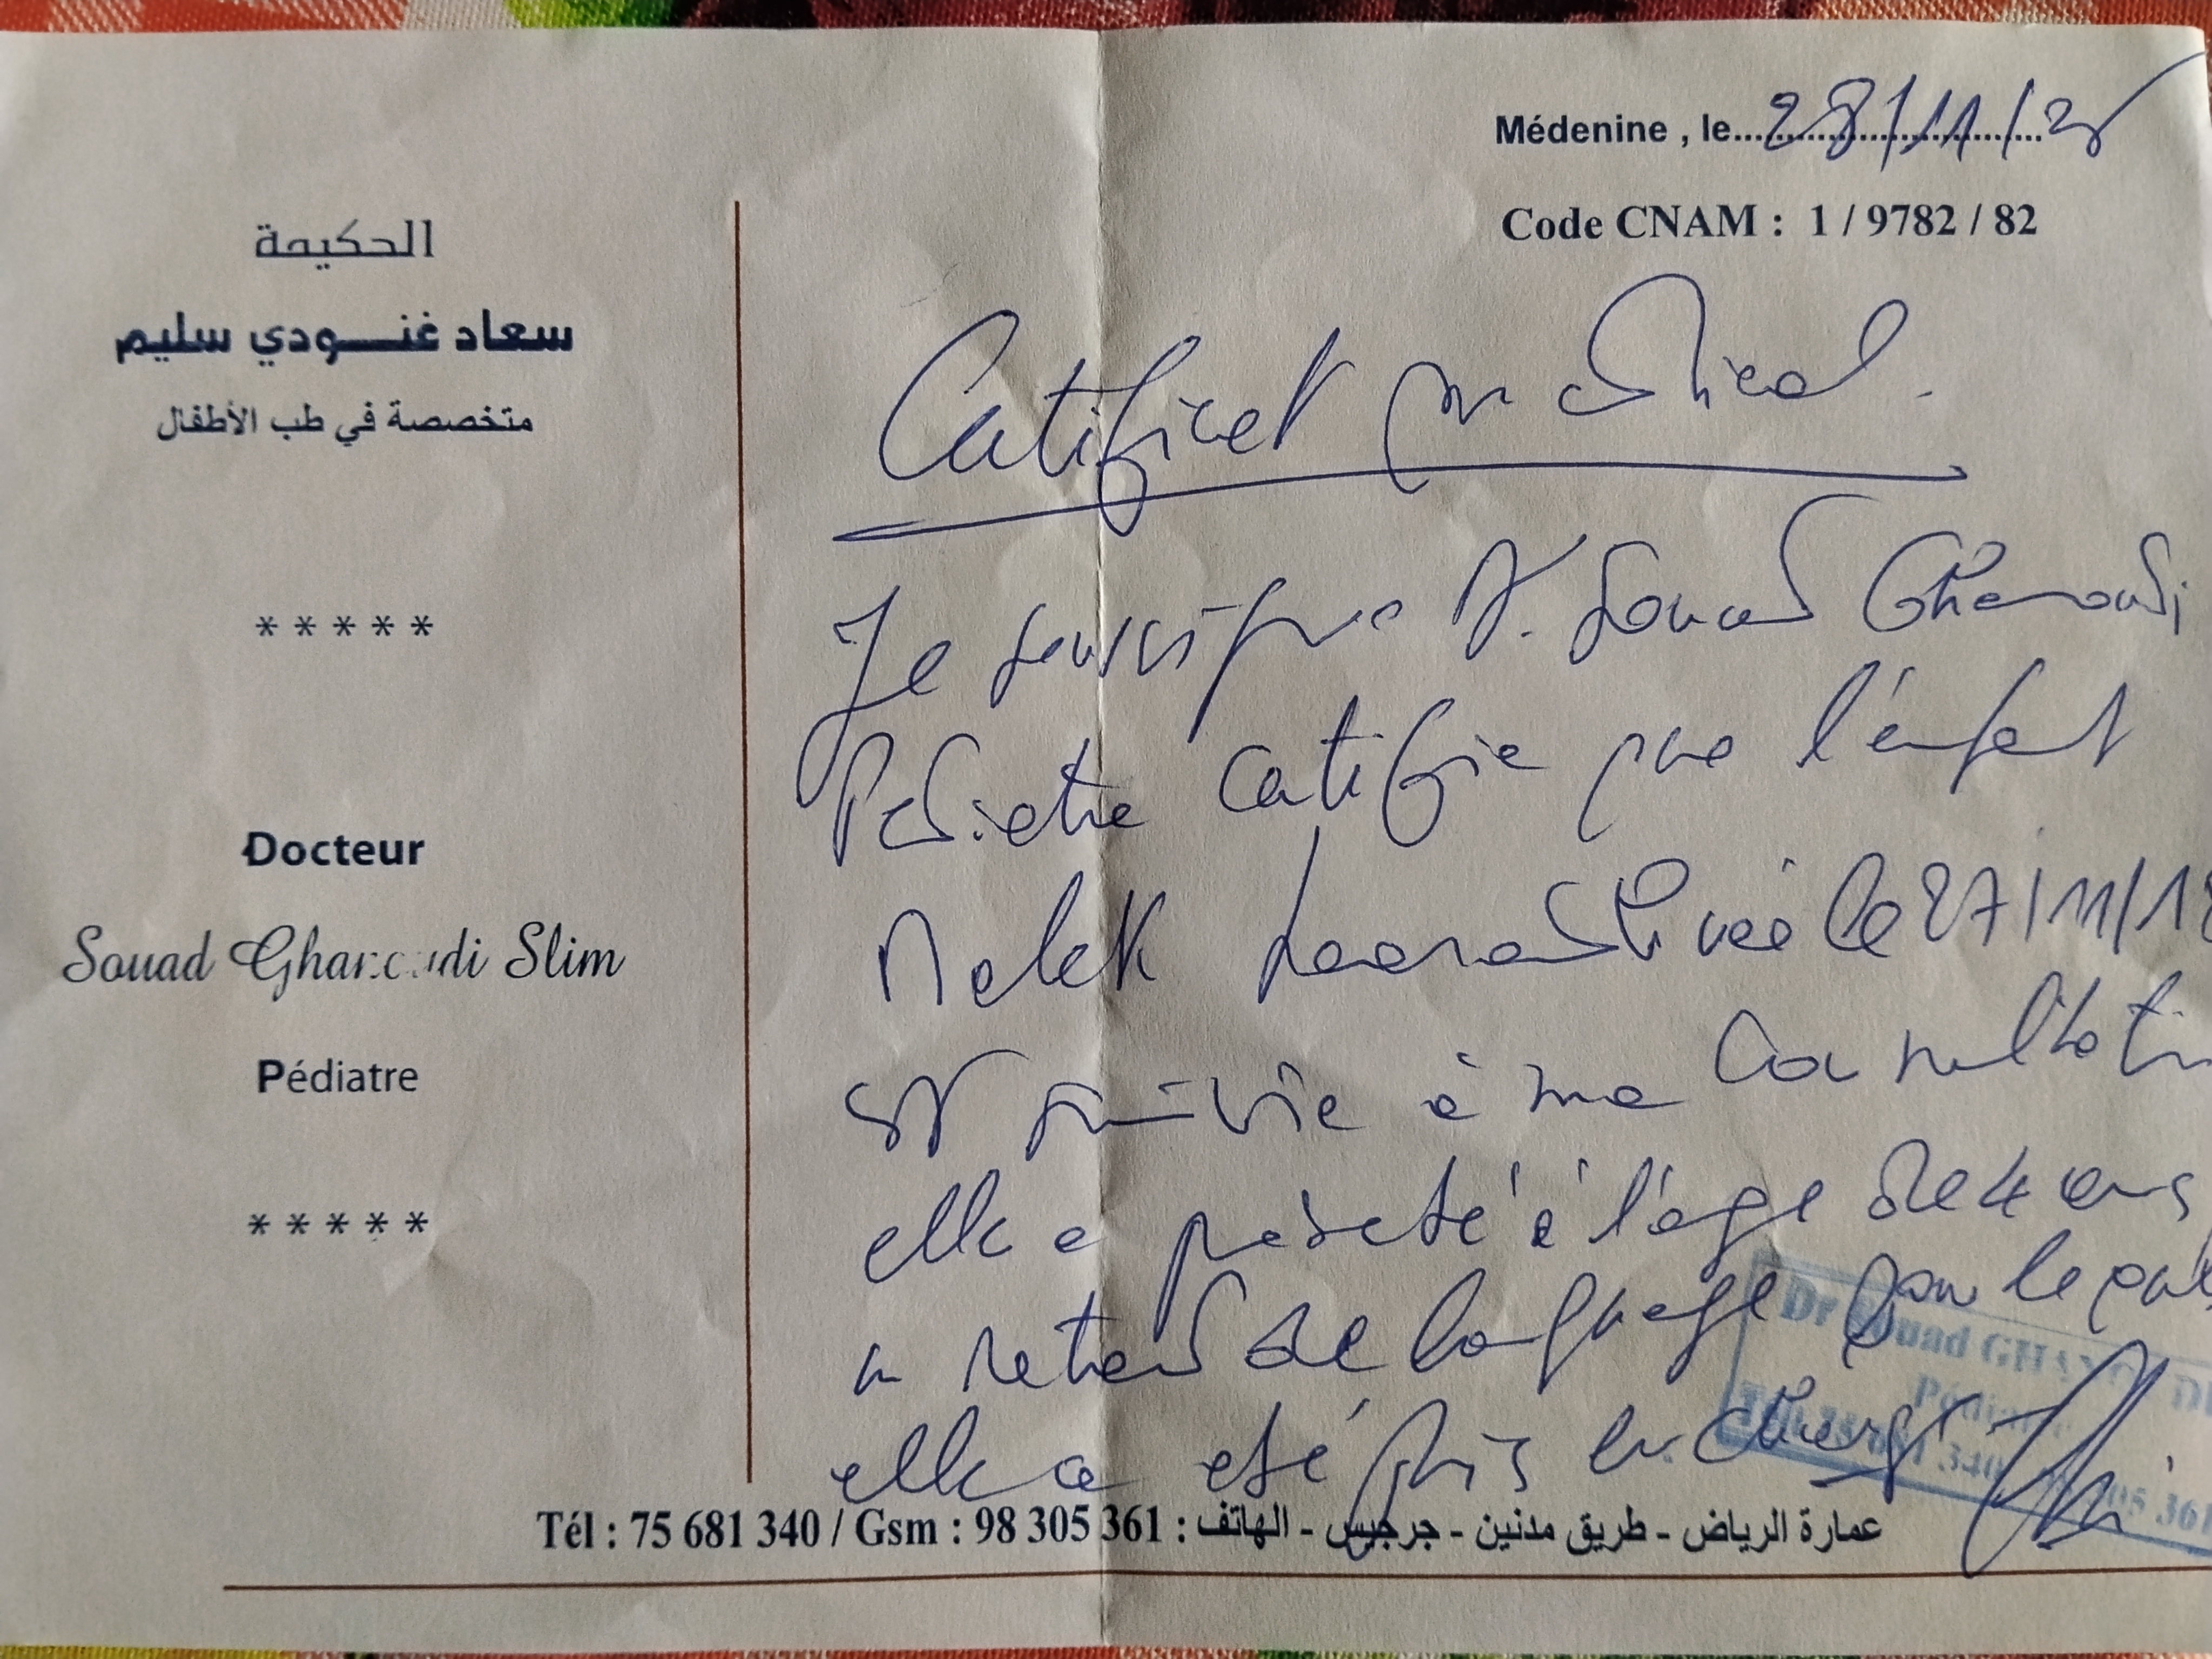 Médenine , le 28/11/25
Code CNAM : 1 / 9782 / 82
الحكيمة
سعاد غنـــودي سليم
متخصصة في طب الأطفال
*****
Docteur
Souad Gharoudi Slim
Pédiatre
*****
Certificat médical.
Je soussigné Dr. Souad Gharoudi
Pédiatre certifie que l'enfant
Malek née le 27/11/18
est suivie à ma consultation
elle a présenté à l'âge de 4 ans
un retard de langage pour lequel
elle a été pris en charge
Dr Souad
Tél : 75 681 340 / Gsm : 98 305 361 : عمارة الرياض - طريق مدنين - جرجيس - الهاتف